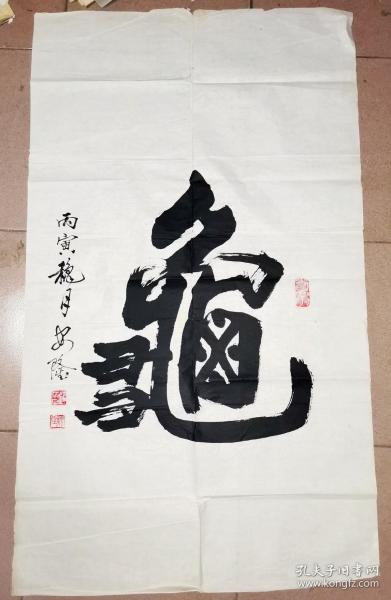 龜
丙寅穐月安隆
孔夫子旧书网
www.kongfz.com